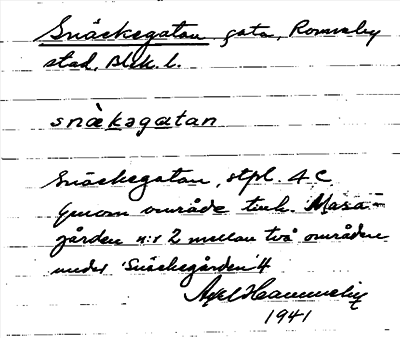 Snäckegatan gata, Ronneby
stad, Blek. l.
snä̀kagatan
Snäckegatan, stpl. 4 C
Genom område tillh. Masa-
gården n:r 2 mellan två områden
under Snäckegården 4
Axel
1941